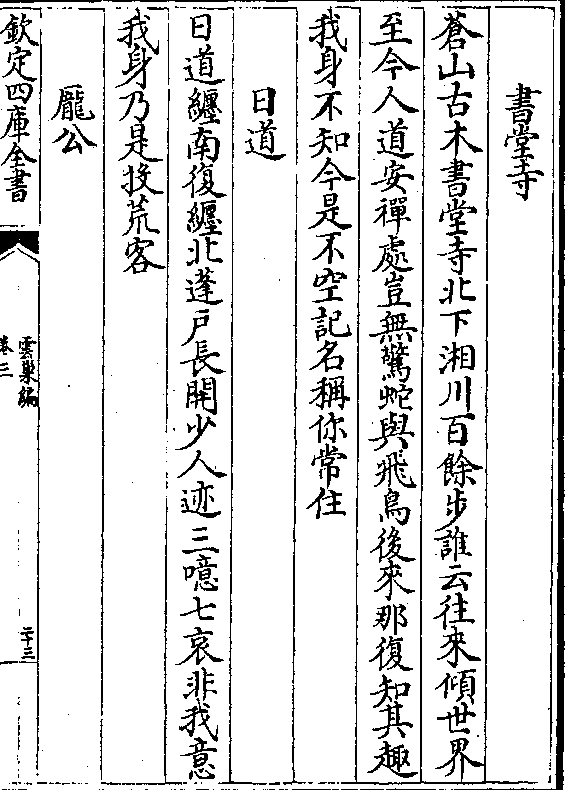 書堂寺
蒼山古木書堂寺北下湘川百餘步誰云往來傾世界
至今人道安禪處豈無驚蛇與飛鳥後來那復知其趣
我身不知今是不空記名稱你常住
日道
日道纏南復纏北蓬戶長開少人迹三噫七哀非我意
我身乃是投荒客
龎公
欽定四庫全書
雲巢編
卷三
二十三